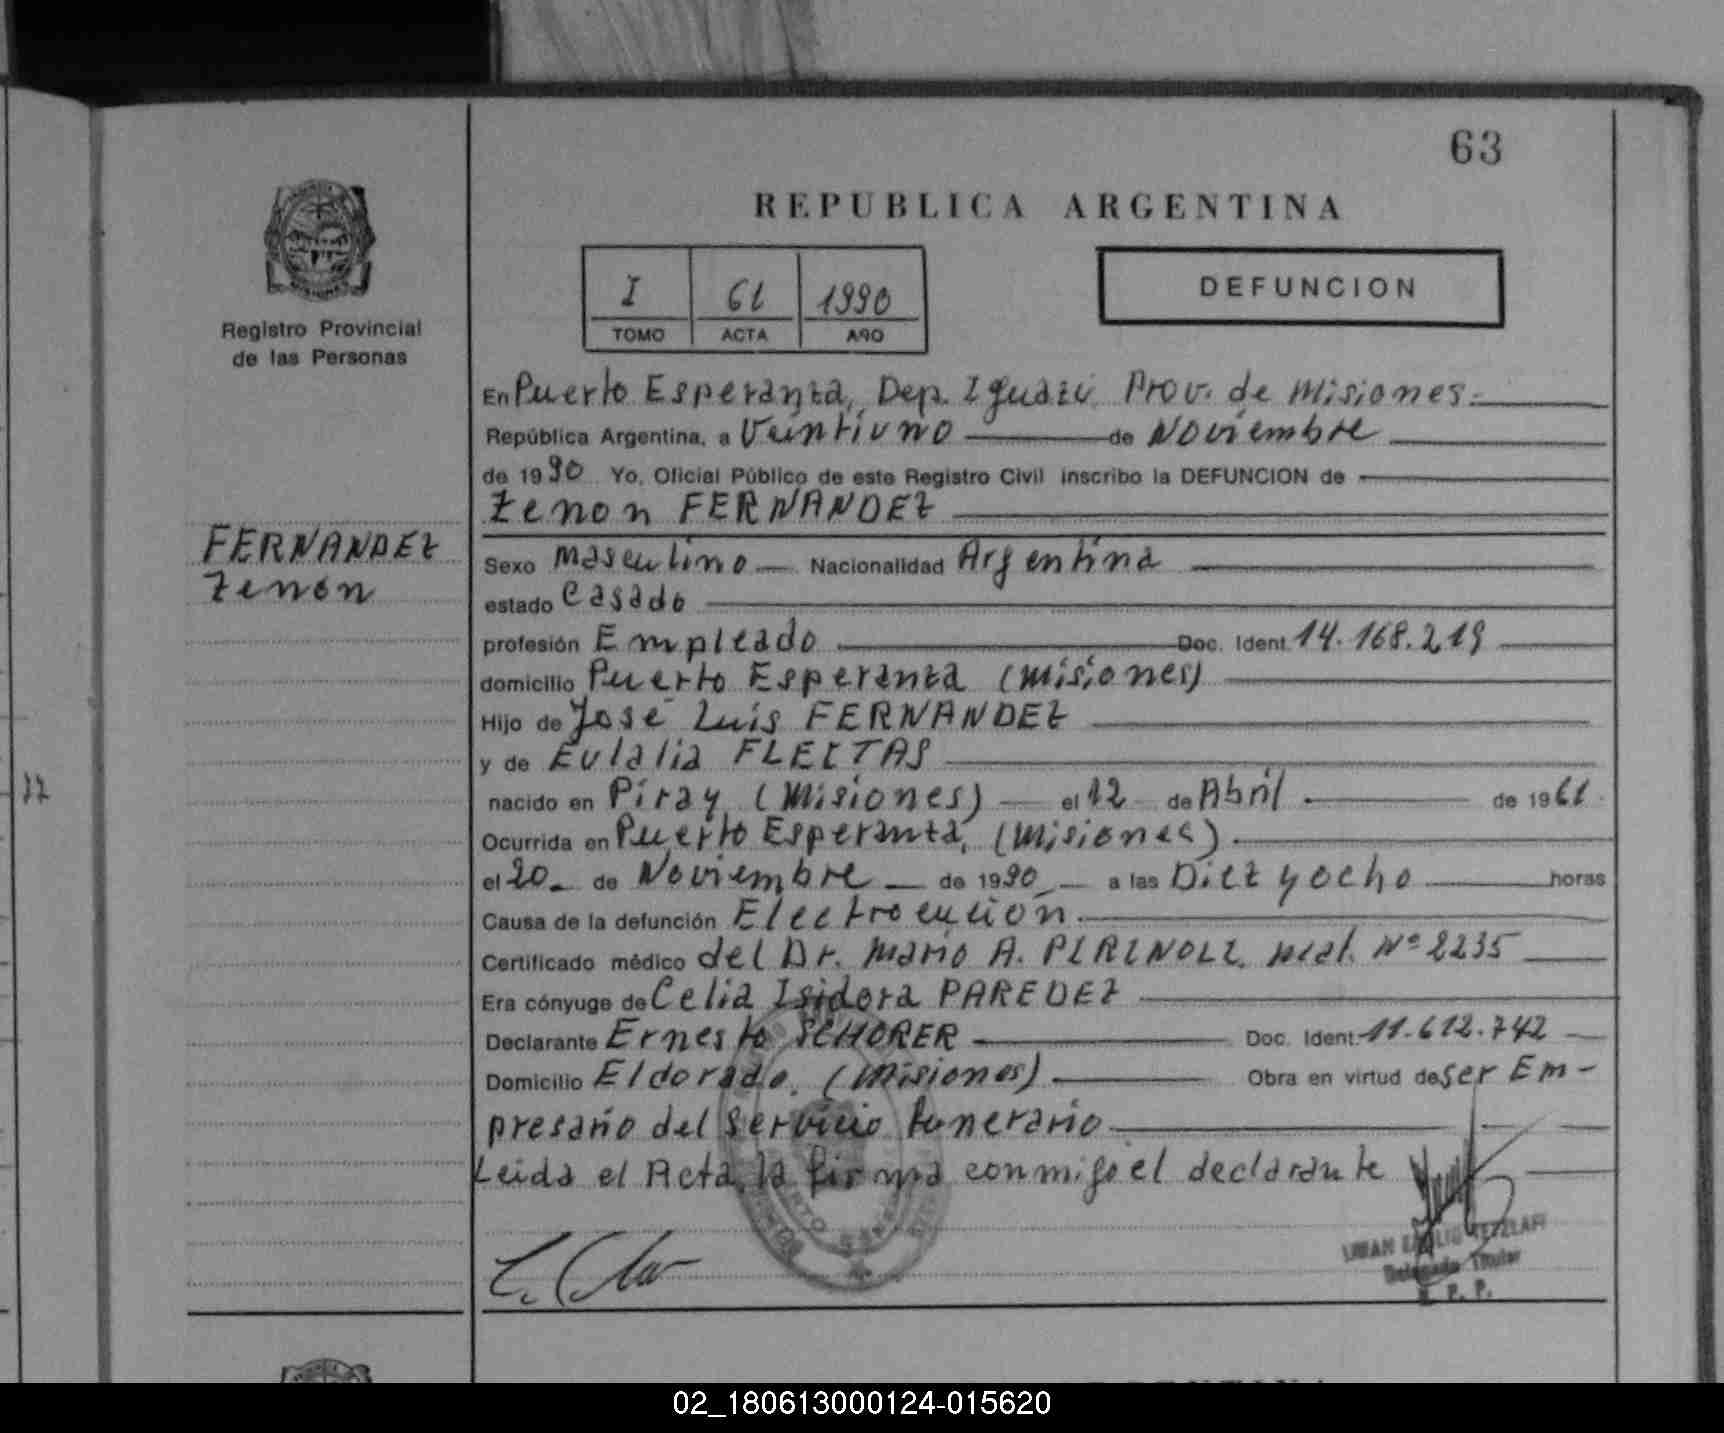 63
REPUBLICA ARGENTINA
I 61 1990
TOMO ACTA AÑO
DEFUNCION
Registro Provincial
de las Personas
FERNANDEZ
Zenón
En Puerto Esperanza, Dep. Iguazú Prov. de Misiones.
República Argentina, a Veintiuno de Noviembre
de 1990 Yo, Oficial Público de este Registro Civil inscribo la DEFUNCION de
Zenon FERNANDEZ
Sexo Masculino Nacionalidad Argentina
estado Casado
profesión Empleado Doc. Ident. 14.168.219
domicilio Puerto Esperanza (Misiones)
Hijo de José Luis FERNANDEZ
y de Eulalia FLEITAS
nacido en Piray (Misiones) el 12 de Abril de 1961
Ocurrida en Puerto Esperanza, (Misiones)
el 20 de Noviembre de 1990 a las Diez y ocho horas
Causa de la defunción Electrocución.
Certificado médico del Dr. Mario A. Mat. Nº 2235
Era cónyuge de Celia Isidora PAREDEZ
Declarante Ernesto SCHORER Doc. Ident. 11.612.742
Domicilio Eldorado, (Misiones) Obra en virtud de ser Em-
presario del Servicio funerario
Leida el Acta, la firma conmigo el declarante
Delegado Titular
R. P. P.
02_180613000124-015620